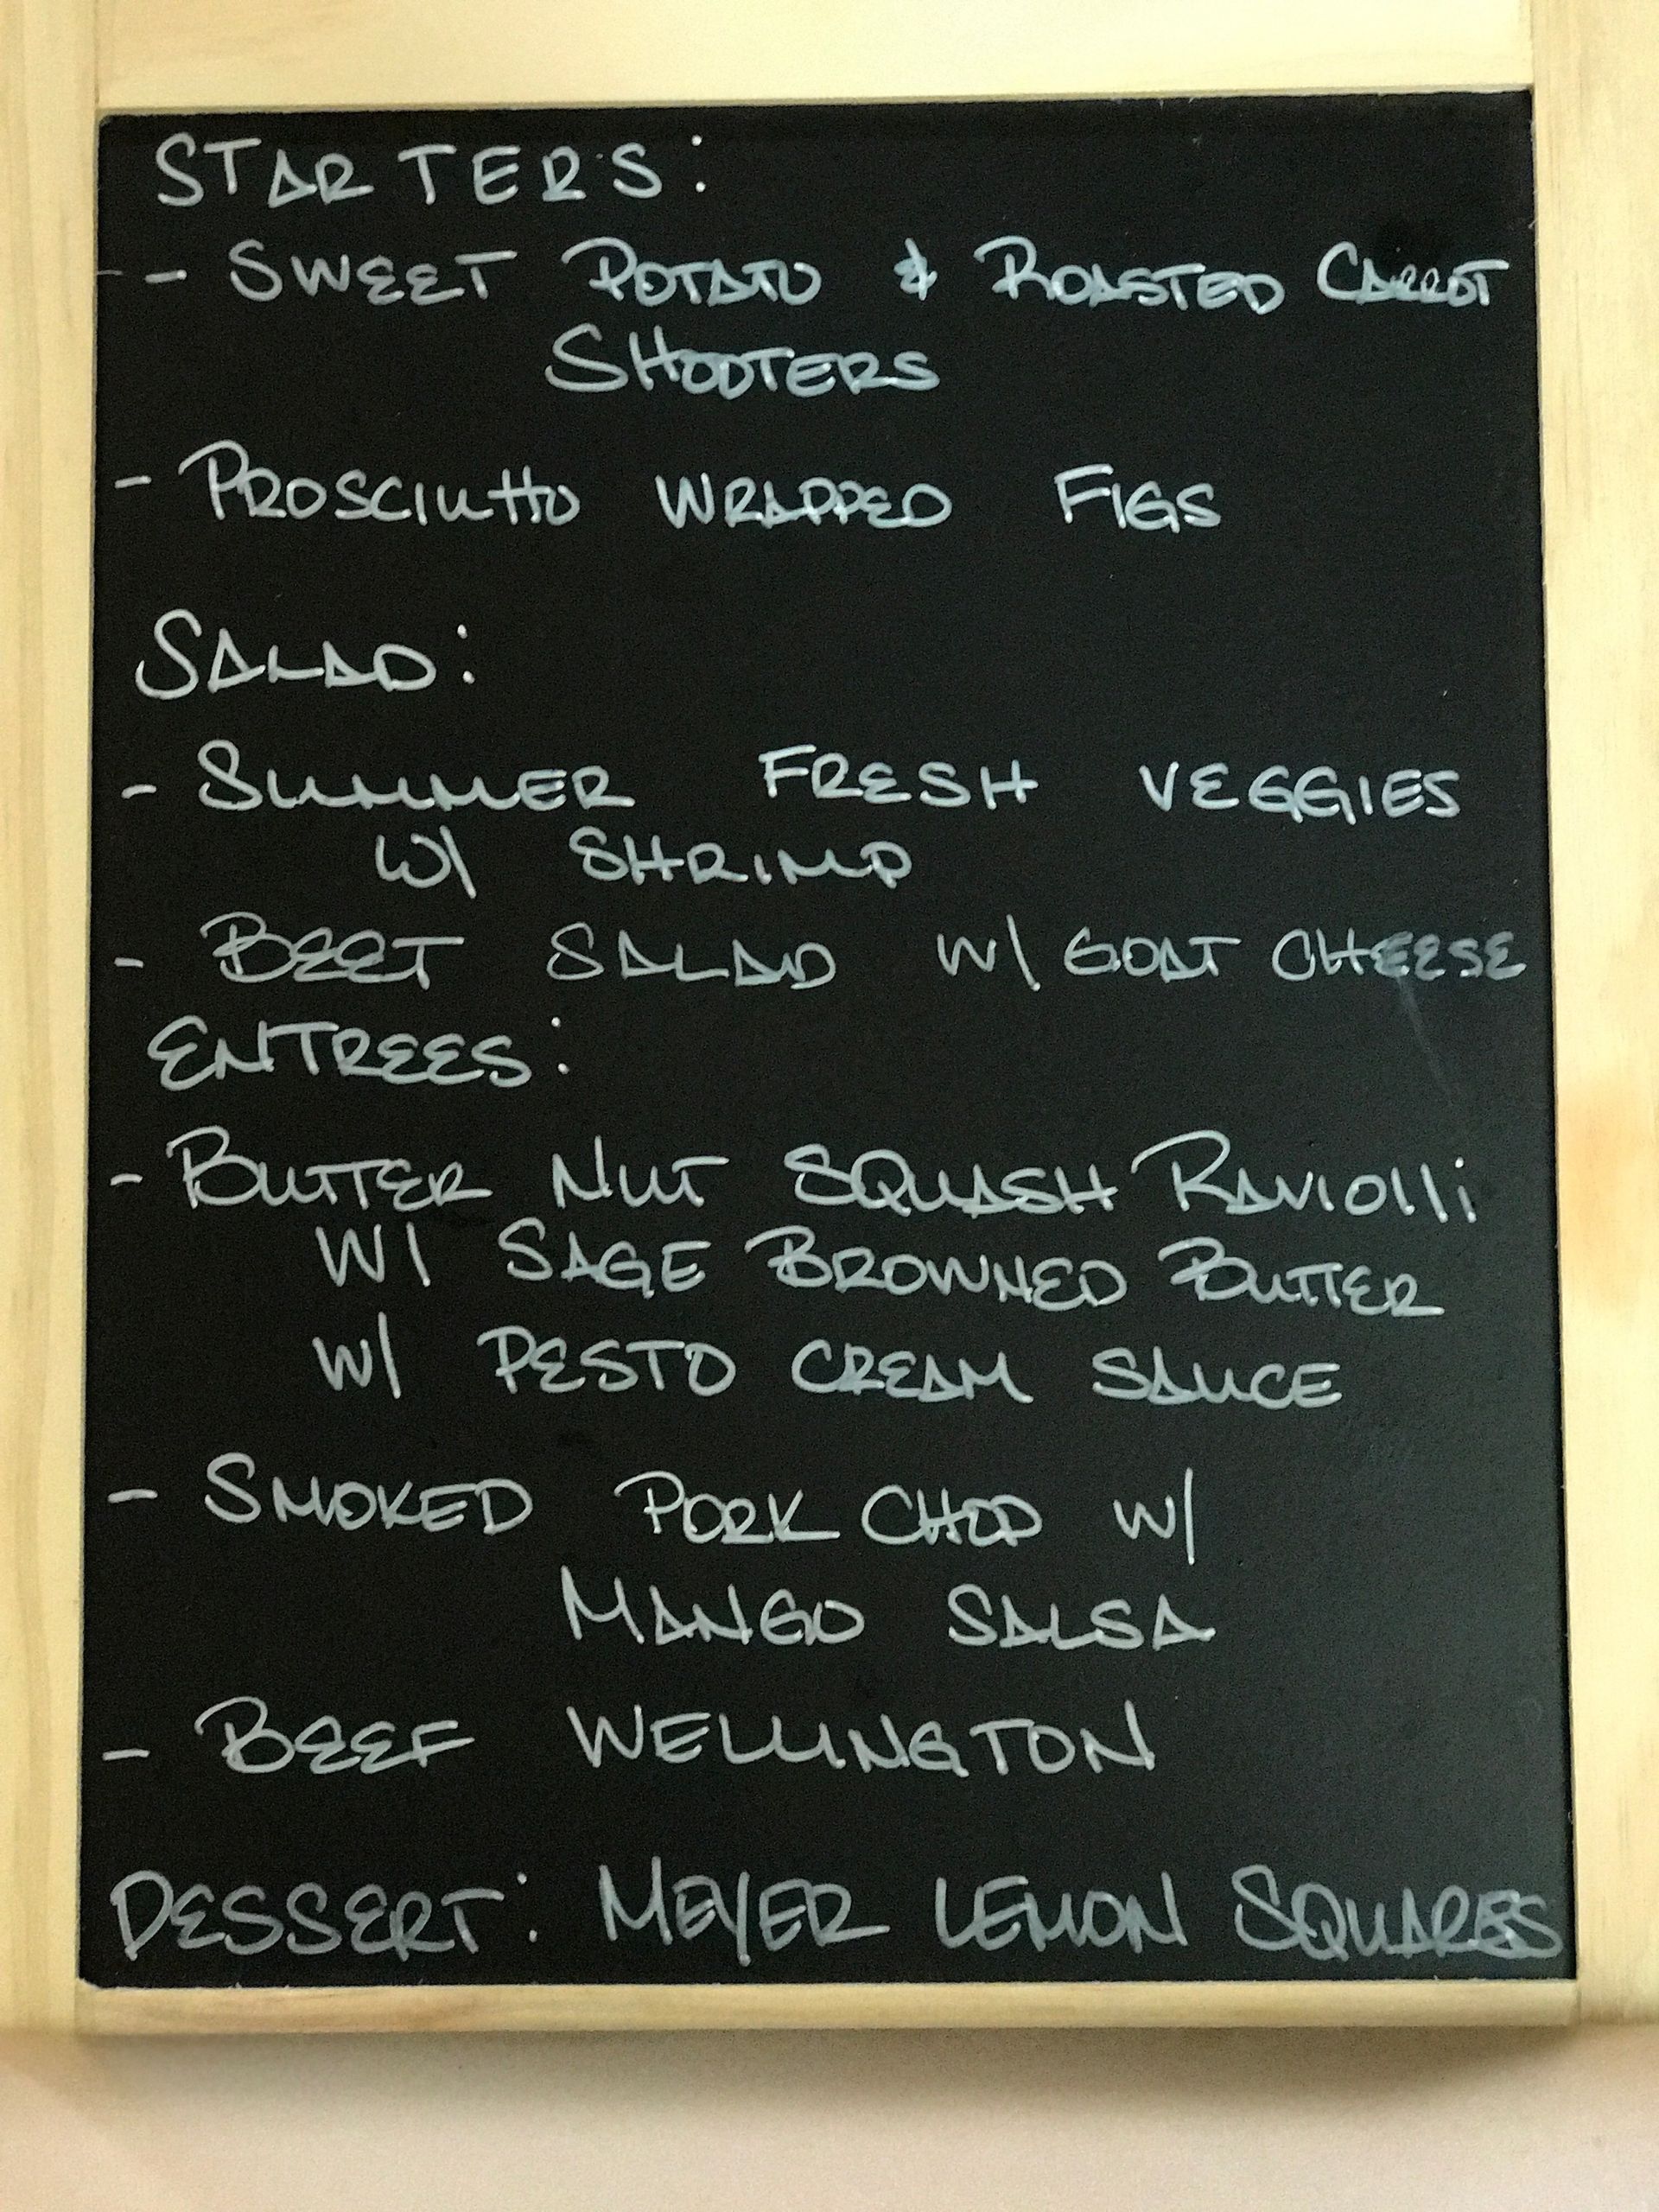 STARTERS:
- SWEET POTATO & ROASTED CARROT
SHOOTERS
- PROSCIUTTO WRAPPED FIGS
SALAD:
- SUMMER FRESH VEGGIES
W/ SHRIMP
- BEET SALAD W/ GOAT CHEESE
ENTREES:
- BUTTER NUT SQUASH RAVIOlli
W/ SAGE BROWNED BUTTER
W/ PESTO CREAM SAUCE
- SMOKED PORK CHOP W/
MANGO SALSA
- BEEF WELLINGTON
DESSERT: MEYER LEMON SQUARES